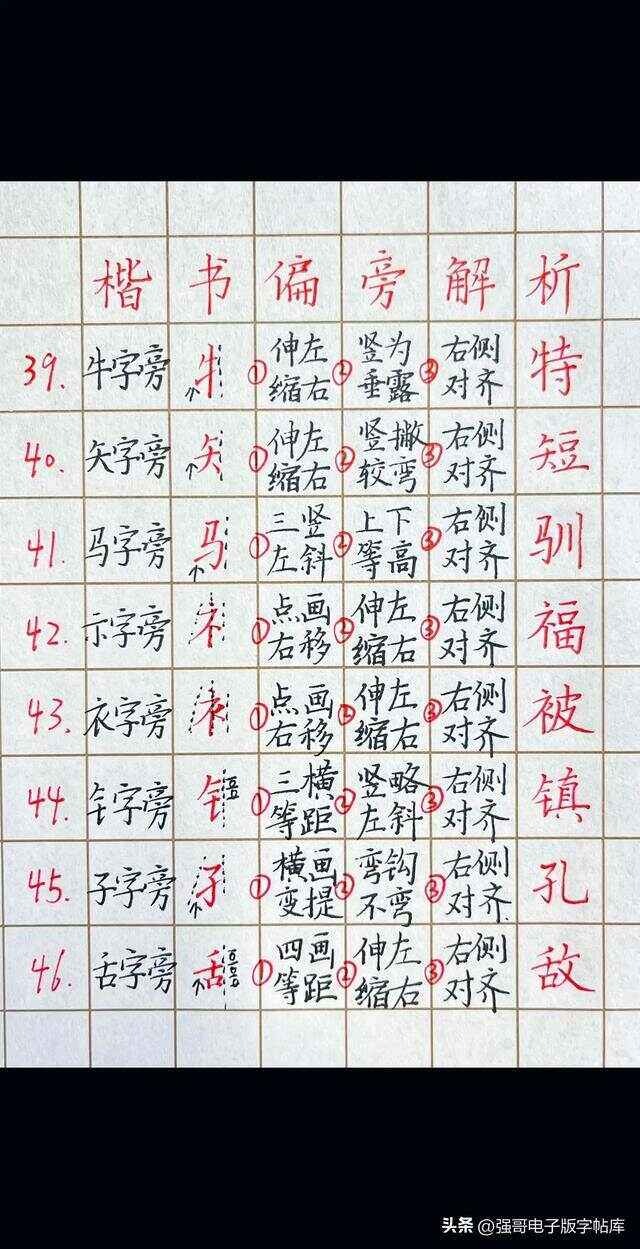 楷书偏旁解析
39. 牛字旁 牜 ①伸左缩右 ②竖为垂露 ③右侧对齐 特
40. 矢字旁 矢 ①伸左缩右 ②竖撇较弯 ③右侧对齐 短
41. 马字旁 马 ①三竖左斜 ②上下等高 ③右侧对齐 驯
42. 示字旁 礻 ①点画右移 ②伸左缩右 ③右侧对齐 福
43. 衣字旁 衤 ①点画右移 ②伸左缩右 ③右侧对齐 被
44. 钅字旁 钅 ①三横等距 ②竖略左斜 ③右侧对齐 镇
45. 子字旁 孑 ①横画变提 ②弯钩不弯 ③右侧对齐 孔
46. 舌字旁 舌 ①四画等距 ②伸左缩右 ③右侧对齐 敌
头条 @强哥电子版字帖库